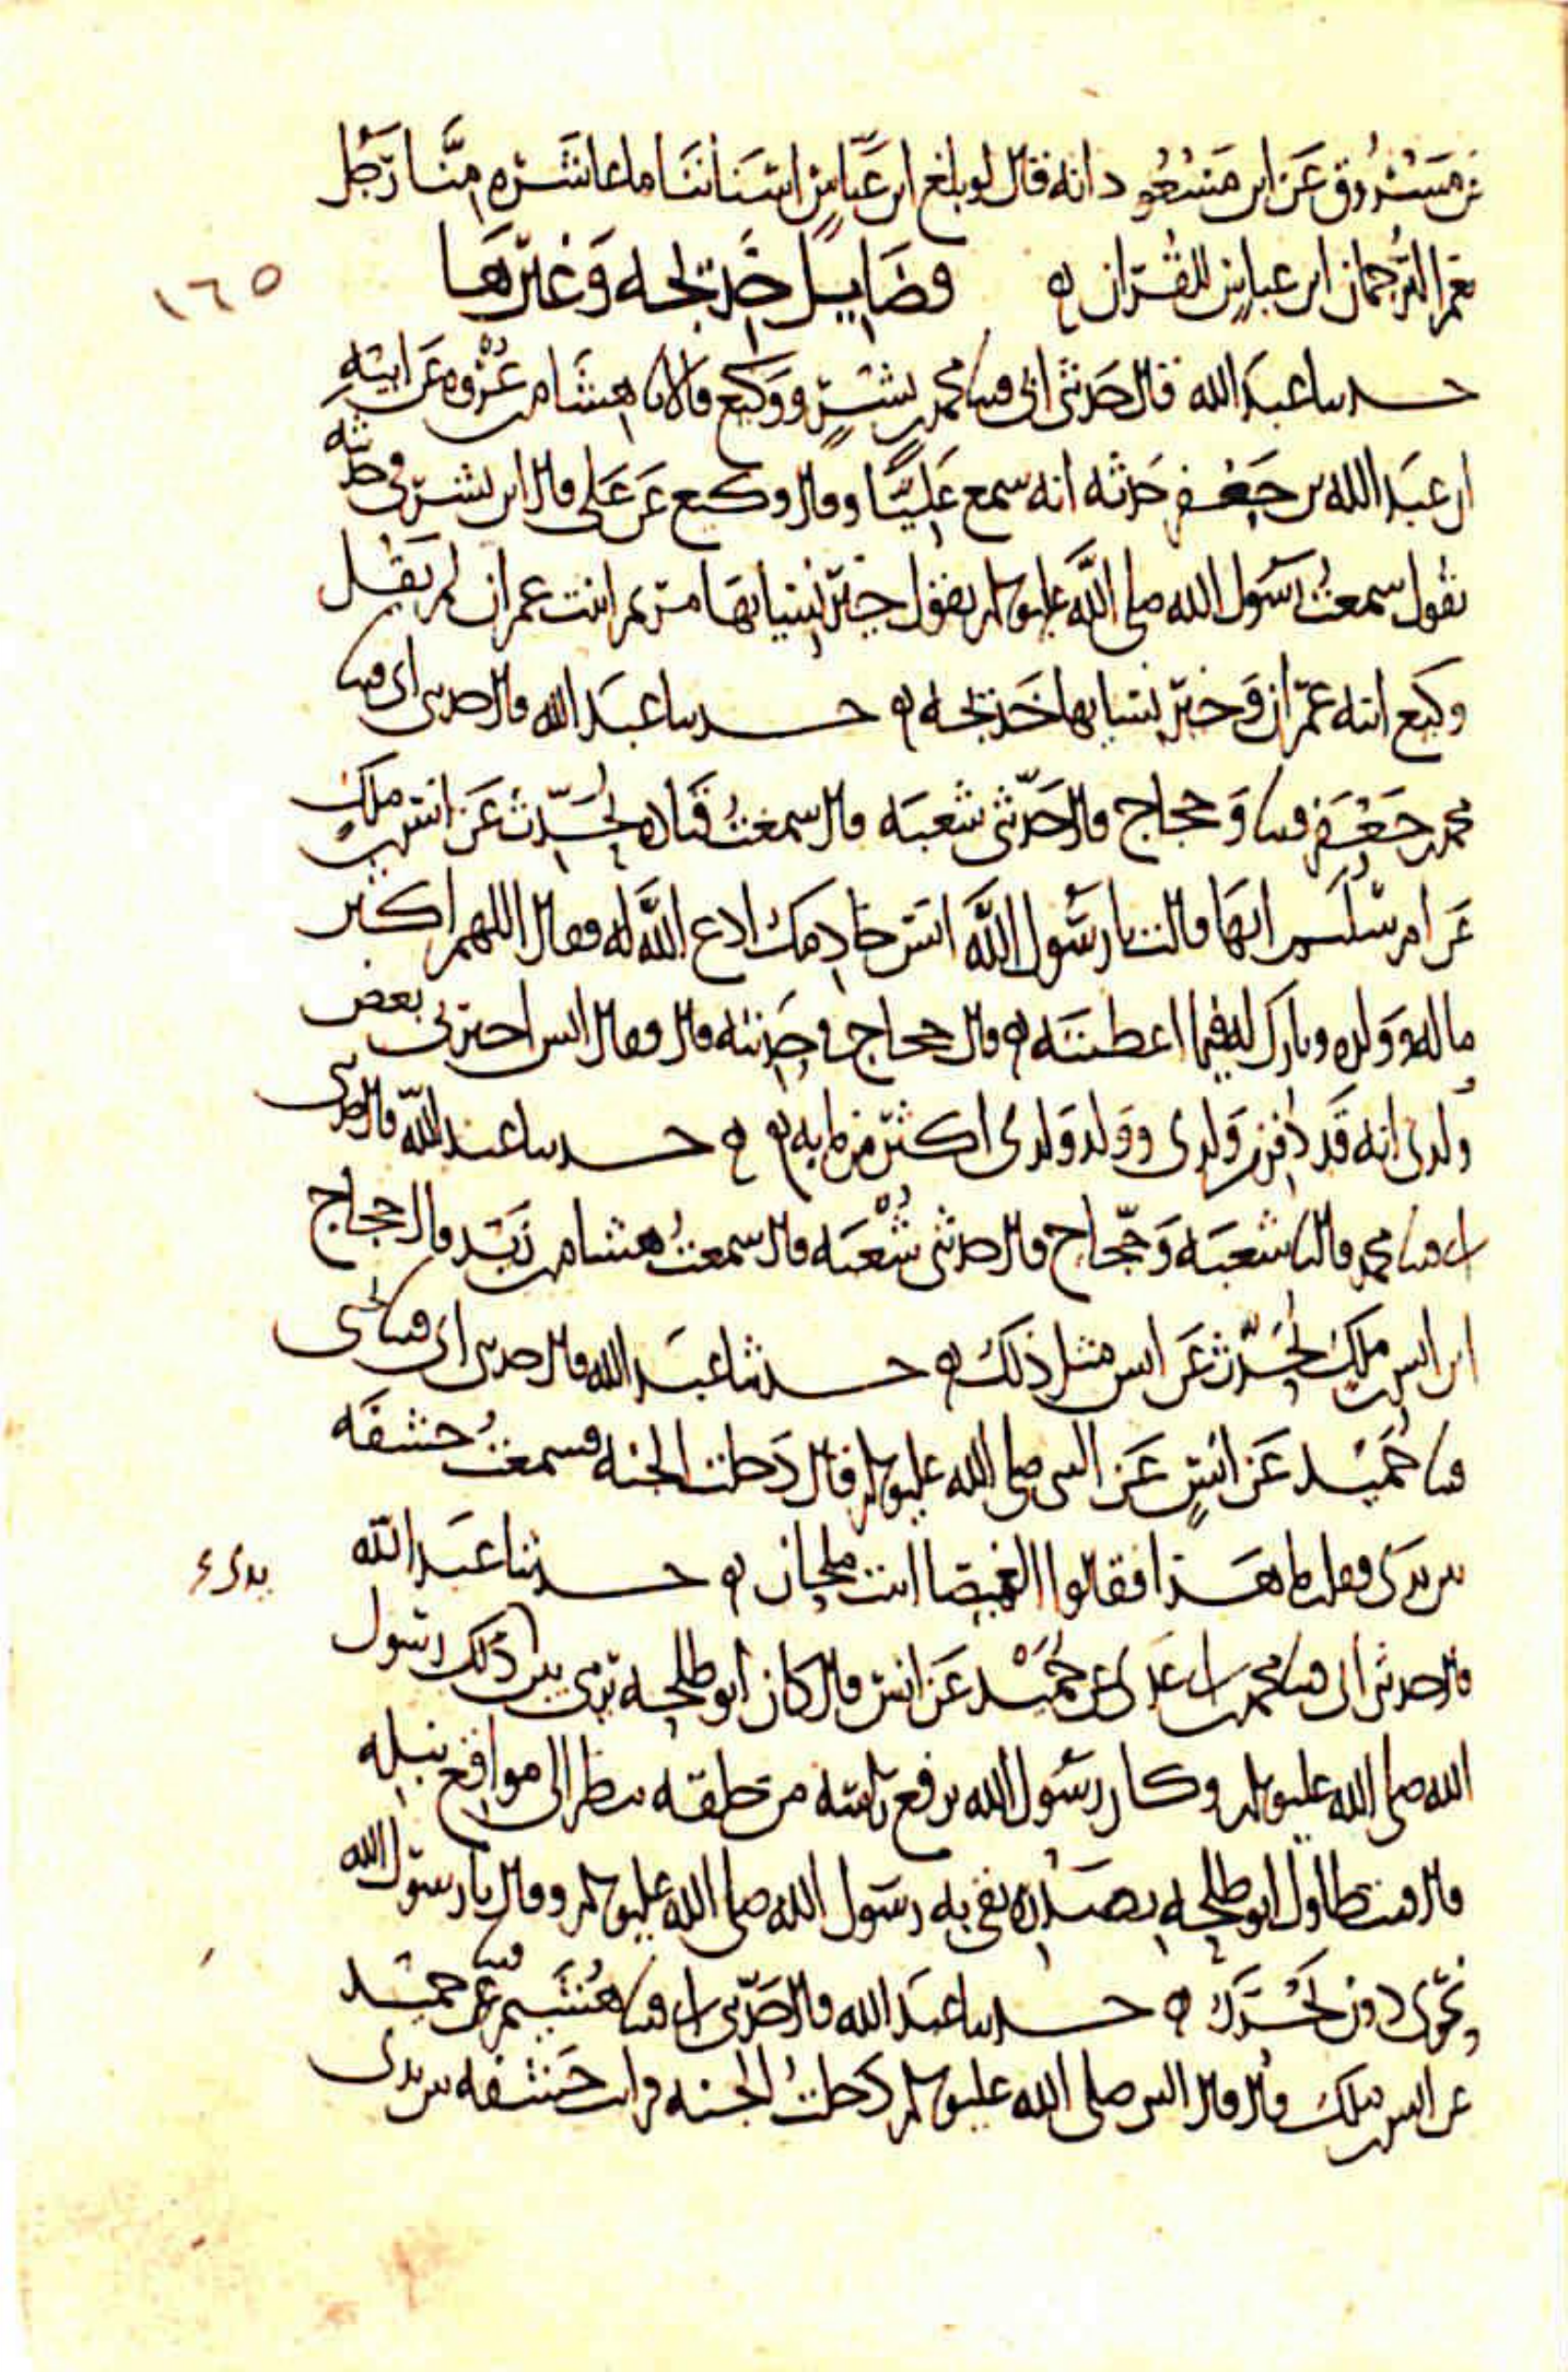 عن مسروق عن ابن مسعود انه قال لو بلغ ابن عباس اسناننا ما عاشره منا رجل
نعم الترجمان ابن عباس للقران ه فضايل خديجه وغيرها
١٦٥
حدثنا عبد الله قال حدثني ابي قثنا محمد بن بشر ووكيع قالا نا هشام بن عروه عن ابيه
ان عبد الله بن جعفر حدثه انه سمع عليا وقال وكيع عن علي قال ابن بشر في حديثه
يقول سمعت رسول الله صلى الله عليه وسلم يقول خير نسايها مريم ابنت عمران لم يقل
وكيع ابنه عمران وخير نسايها خديجه ه حدثنا عبد الله قال حدثني ابي قثنا
محمد بن جعفر قثنا وحجاج قال حدثني شعبه قال سمعت قتاده يحدث عن انس بن ملك
عن ام سليم انها قالت يا رسول الله انس خادمك ادع الله له فقال اللهم اكثر
ماله وولده وبارك له فيما اعطيته ه قال حجاج في حديثه قال فقال انس اخبرني بعض
ولدي انه قد دفن من ولدي وولد ولدي اكثر من مايه ه ه حدثنا عبد الله قال حدثني
ابي قثنا محمد قال نا شعبه وحجاج قال حدثني شعبه قال سمعت هشام بن زيد قال حجاج
ابن انس بن ملك يحدث عن انس مثل ذلك ه حدثنا عبد الله قال حدثني ابي قثنا يحيى
قثنا حميد عن انس عن النبي صلى الله عليه وسلم قال دخلت الجنه فسمعت خشفه
بين يدي فقلت ما هذا فقالوا الغميصا ابنت ملحان ه حدثنا عبد الله
يدي
قال حدثني ابي قثنا محمد بن ابي عدي عن حميد عن انس قال كان ابو طلحه يرمي بين يدي رسول
الله صلى الله عليه وسلم وكان رسول الله يرفع راسه من خلفه ينظر الى مواقع نبله
قال فتطاول ابو طلحه بصدره يقي به رسول الله صلى الله عليه وسلم وقال يا رسول الله
نحري دون نحرك ه حدثنا عبد الله قال حدثني ابي قثنا هشيم عن حميد
عن انس بن ملك قال قال النبي صلى الله عليه وسلم دخلت الجنه فرايت خشفه بين يدي